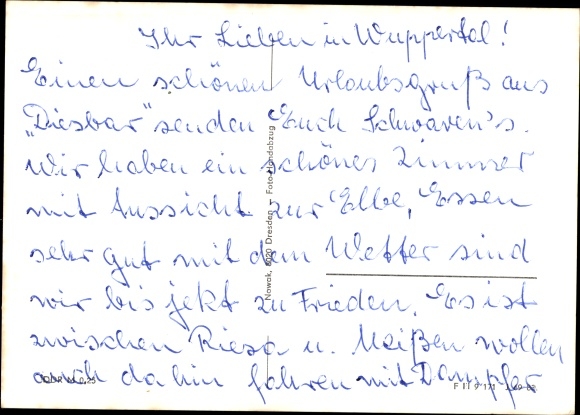 Ihr Lieben in Wuppertal!
Einen schönen Urlaubsgruß aus
"Diesbar" senden Euch Schwaren's.
Wir haben ein schönes Zimmer
mit Aussicht zur Elbe, Essen
sehr gut mit dem Wetter sind
wir bis jetzt zu Frieden. Es ist
zwischen Riesa u. Meißen wollen
auch dahin fahren mit Dampfer
Nowak, 8020 Dresden Foto-Handabzug
F II 9 171